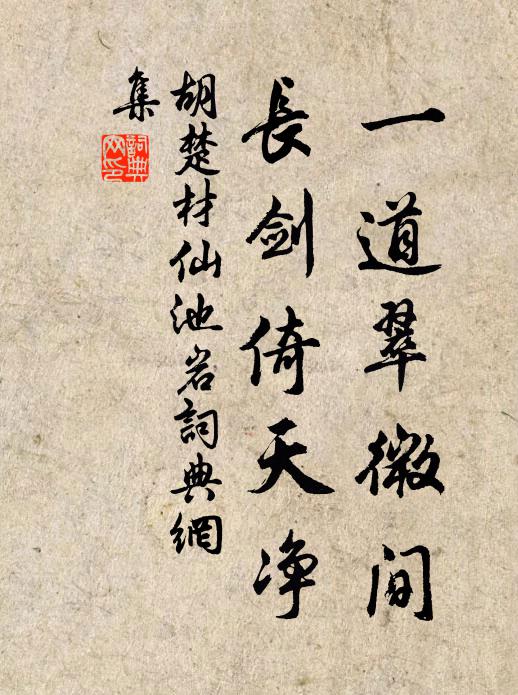 一道翠微间
長剑倚天净
胡楚材仙池岩詞典網
集
詞典
网印